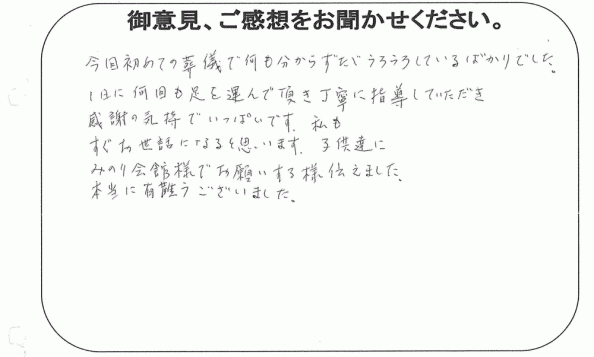 御意見、ご感想をお聞かせください。
今回初めての葬儀で何も分からずただうろうろしているばかりでした。
1日に何回も足を運んで頂き丁寧に指導していただき
感謝の気持でいっぱいです。私も
すぐお世話になると思います。子供達に
みのり会館様でお願いする様伝えました。
本当に有難うございました。